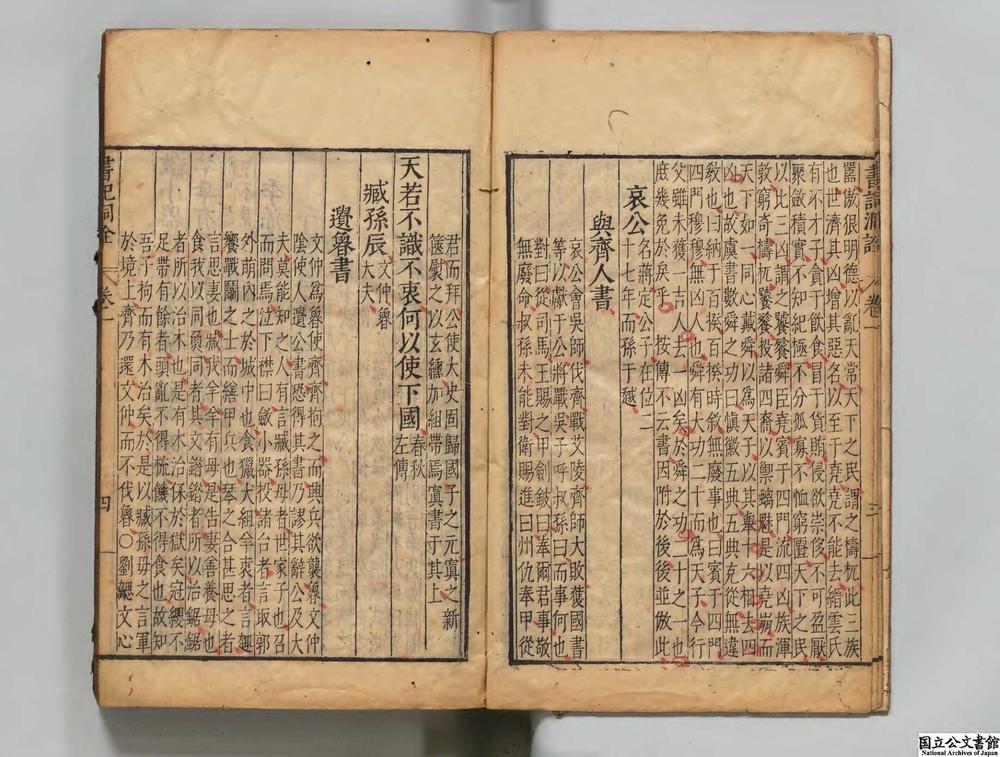 嚚傲很明德以亂天常天下之民謂之檮杌此三族
也世濟其凶增其惡名以至于堯堯不能去縉雲氏
有不才子貪于飲食冒于貨賄侵欲崇侈不可盈厭
聚斂積實不知紀極不分孤寡不恤窮匱天下之民
以比三凶謂之饕餮舜臣堯賓于四門流四凶族渾
敦窮奇檮杌饕餮投諸四裔以禦螭魅是以堯崩而
天下如一同心戴舜以爲天子以其舉十六相去四
凶也故虞書數舜之功曰慎徽五典五典克從無違
教也曰納于百揆百揆時敘無廢事也曰賓于四門
四門穆穆無凶人也舜有大功二十而爲天子今行
父雖未獲一吉人去一凶矣於舜之功二十之一也
庶幾免於戾乎 按傳不云書因附於後後並倣此
哀公 名蔣定公子在位二
十七年而孫于越
與齊人書
哀公會吳師伐齊戰艾陵齊師大敗獲國書
等以獻于公將戰吳子呼叔孫曰而事何也
對曰從司馬王賜之甲劍鈹曰奉爾君事敬
無廢命叔孫未能對衛賜進曰州仇奉甲從
書記洞詮
卷一
三
君而拜公使大史固歸國子之元寘之新
篋褽之以玄纁加組帶焉寘書于其上
天若不識不衷何以使下國 春秋
左傳
臧孫辰 文仲魯
大夫
遺魯書
文仲爲魯使齊齊拘之而興兵欲襲魯文仲
陰使人遺公書恐得其書乃謬其辭公及大
夫莫能知之人有言臧孫母者世家子也召
而問焉泣下襟曰斂小器投諸台者言取郭
外萌內之於城中也食獵犬組羊裘者言趣
饗戰鬬之士而繕甲兵也琴之合甚思之者
言思妻也臧我羊羊有母是告妻善養母也
食我以同魚同者其文錯錯者所以治鋸鋸
者所以治木也是有木治係於獄矣冠纓不
足帶有餘者頭亂不得梳饑不得食也故知
吾子拘而有木治矣於是以臧孫母之言軍
於境上齊乃還文仲而不伐魯〇劉勰文心
書記洞詮
卷一
四
国立公文書館
National Archives of Japan